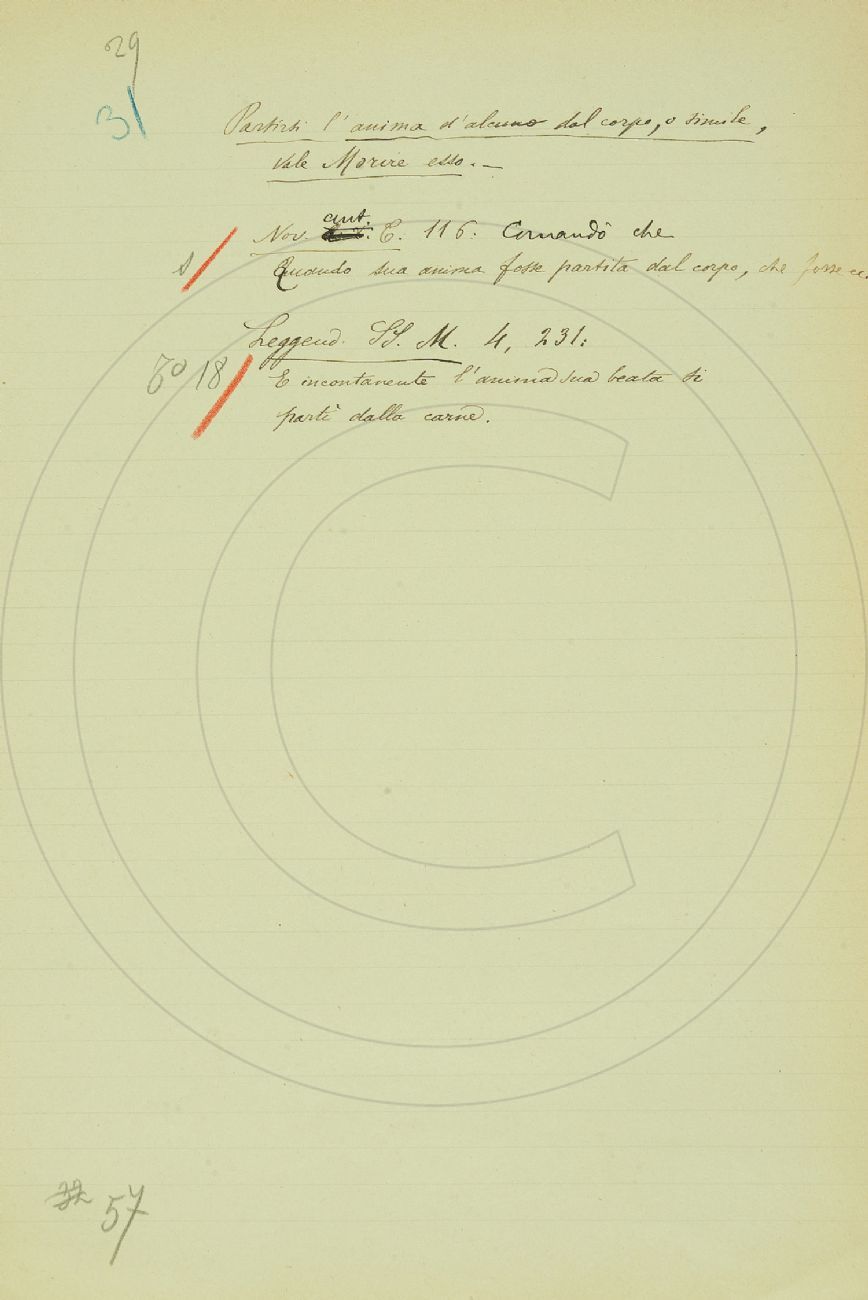 29
31
Partirsi l'anima d'alcuno dal corpo, o simile,
vale Morire esso. –
ant.
Nov. C. 116: Comandò che
Quando sua anima fosse partita dal corpo, che fosse
Leggend. SS. M. 4, 231:
18
E incontanente l'anima sua beata si
partì dalla carne.
57